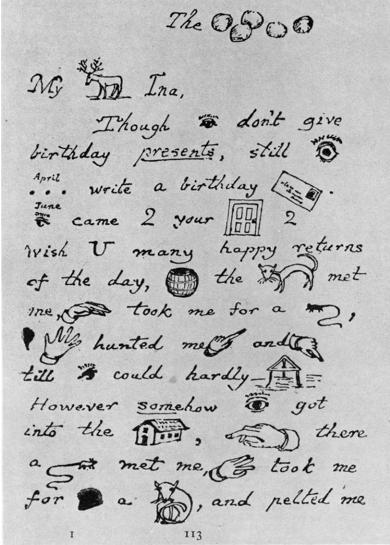 The
My Ina,
Though don't give
birthday presents, still
April
... write a birthday .
June
came 2 your 2
wish U many happy returns
of the day, the met
me, took me for a ,
hunted me and
till could hardly
However somehow got
into the , there
a met me, took me
for a , and pelted me
1 113